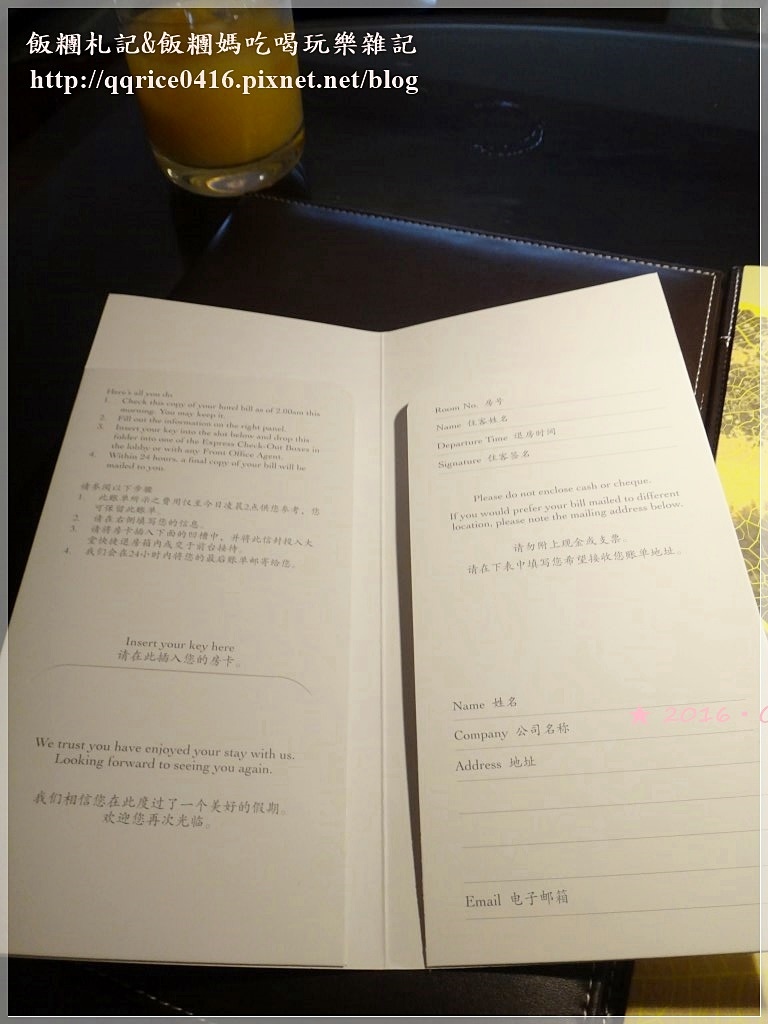 飯糰札記&飯糰媽吃喝玩樂雜記
http://qqrice0416.pixnet.net/blog
Here's all you do
1. Check this copy of your hotel bill as of 2.00am this
morning. You may keep it.
2. Fill out the information on the right panel.
3. Insert your key into the slot below and drop this
folder into one of the Express Check-Out Boxes in
the lobby or with any Front Office Agent.
4. Within 24 hours, a final copy of your bill will be
mailed to you.
请参阅以下步骤
1. 此账单所示之费用仅至今日凌晨2点供您参考，您
可保留此账单。
2. 请在右侧填写您的信息。
3. 请将房卡插入下面的凹槽中，并将此信封投入大
堂快捷退房箱内或交于前台接待。
4. 我们会在24小时内将您的最后账单邮寄给您。
Insert your key here
请在此插入您的房卡。
We trust you have enjoyed your stay with us.
Looking forward to seeing you again.
我们相信您在此度过了一个美好的假期。
欢迎您再次光临。
Room No. 房号
Name 住客姓名
Departure Time 退房时间
Signature 住客签名
Please do not enclose cash or cheque.
If you would prefer your bill mailed to different
location, please note the mailing address below.
请勿附上现金或支票。
请在下表中填写您希望接收您账单地址。
Name 姓名
Company 公司名称
Address 地址
Email 电子邮箱
★ 2016・0